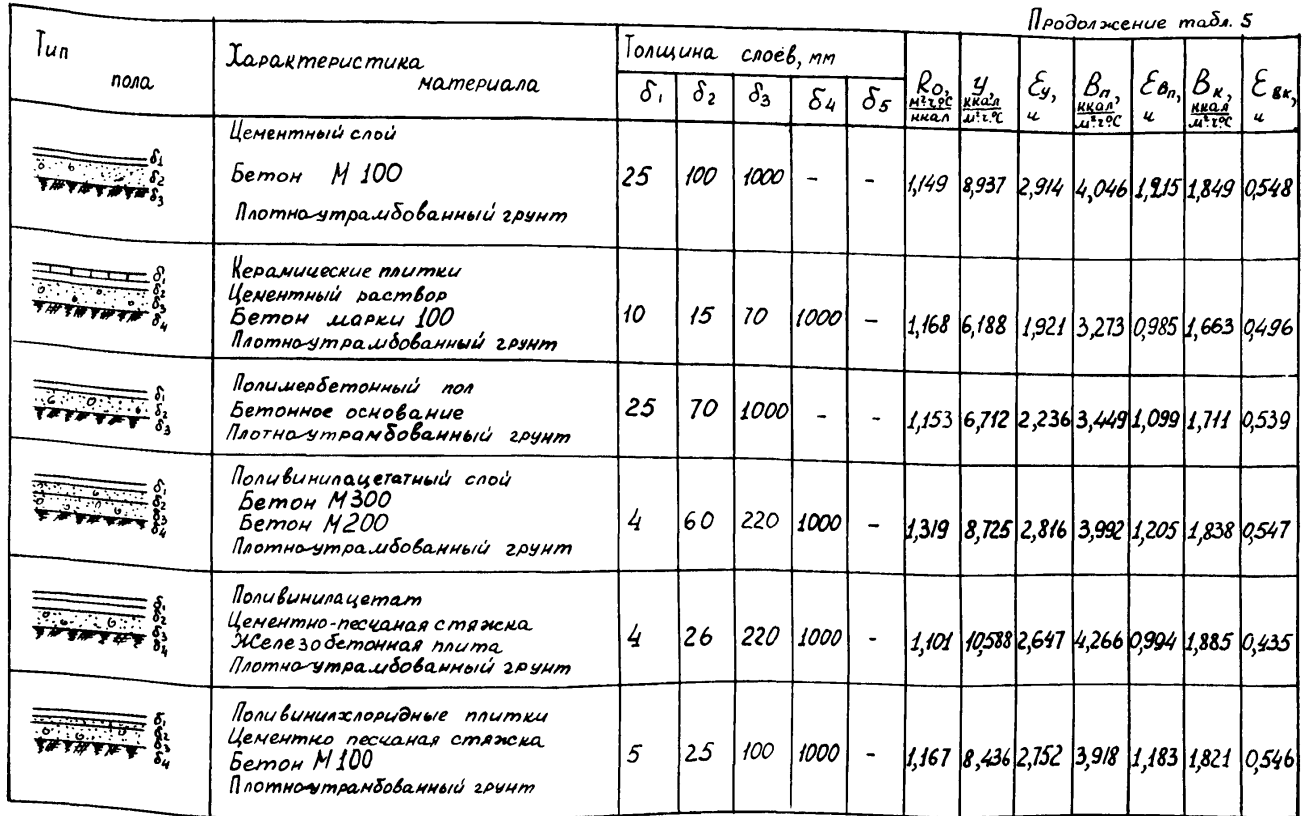 Продолжение табл. 5
Тип пола
Характеристика материала
Толщина слоёв, мм
δ₁ δ₂ δ₃ δ₄ δ₅
R₀, м²·ч·°С/ккал
У, ккал/м²·ч·°С
Ɛу, ч
Вп, ккал/м²·ч·°С
Ɛвп, ч
Вк, ккал/м²·ч·°С
Ɛвк, ч
δ₁
δ₂
δ₃
Цементный слой
Бетон М 100
Плотно-утрамбованный грунт
25 100 1000 - - 1,149 8,937 2,914 4,046 1,215 1,849 0,548
δ₁
δ₂
δ₃
δ₄
Керамические плитки
Цементный раствор
Бетон марки 100
Плотно-утрамбованный грунт
10 15 70 1000 - 1,168 6,188 1,921 3,273 0,985 1,663 0,496
δ₁
δ₂
δ₃
Полимербетонный пол
Бетонное основание
Плотно-утрамбованный грунт
25 70 1000 - - 1,153 6,712 2,236 3,449 1,099 1,711 0,539
δ₁
δ₂
δ₃
δ₄
Поливинилацетатный слой
Бетон М300
Бетон М200
Плотно-утрамбованный грунт
4 60 220 1000 - 1,319 8,725 2,816 3,992 1,205 1,838 0,547
δ₁
δ₂
δ₃
δ₄
Поливинилацетат
Цементно-песчаная стяжка
Железобетонная плита
Плотно-утрамбованный грунт
4 26 220 1000 - 1,101 10,588 2,647 4,266 0,994 1,885 0,435
δ₁
δ₂
δ₃
δ₄
Поливинилхлоридные плитки
Цементно песчаная стяжка
Бетон М100
Плотно-утрамбованный грунт
5 25 100 1000 - 1,167 8,436 2,752 3,918 1,183 1,821 0,546